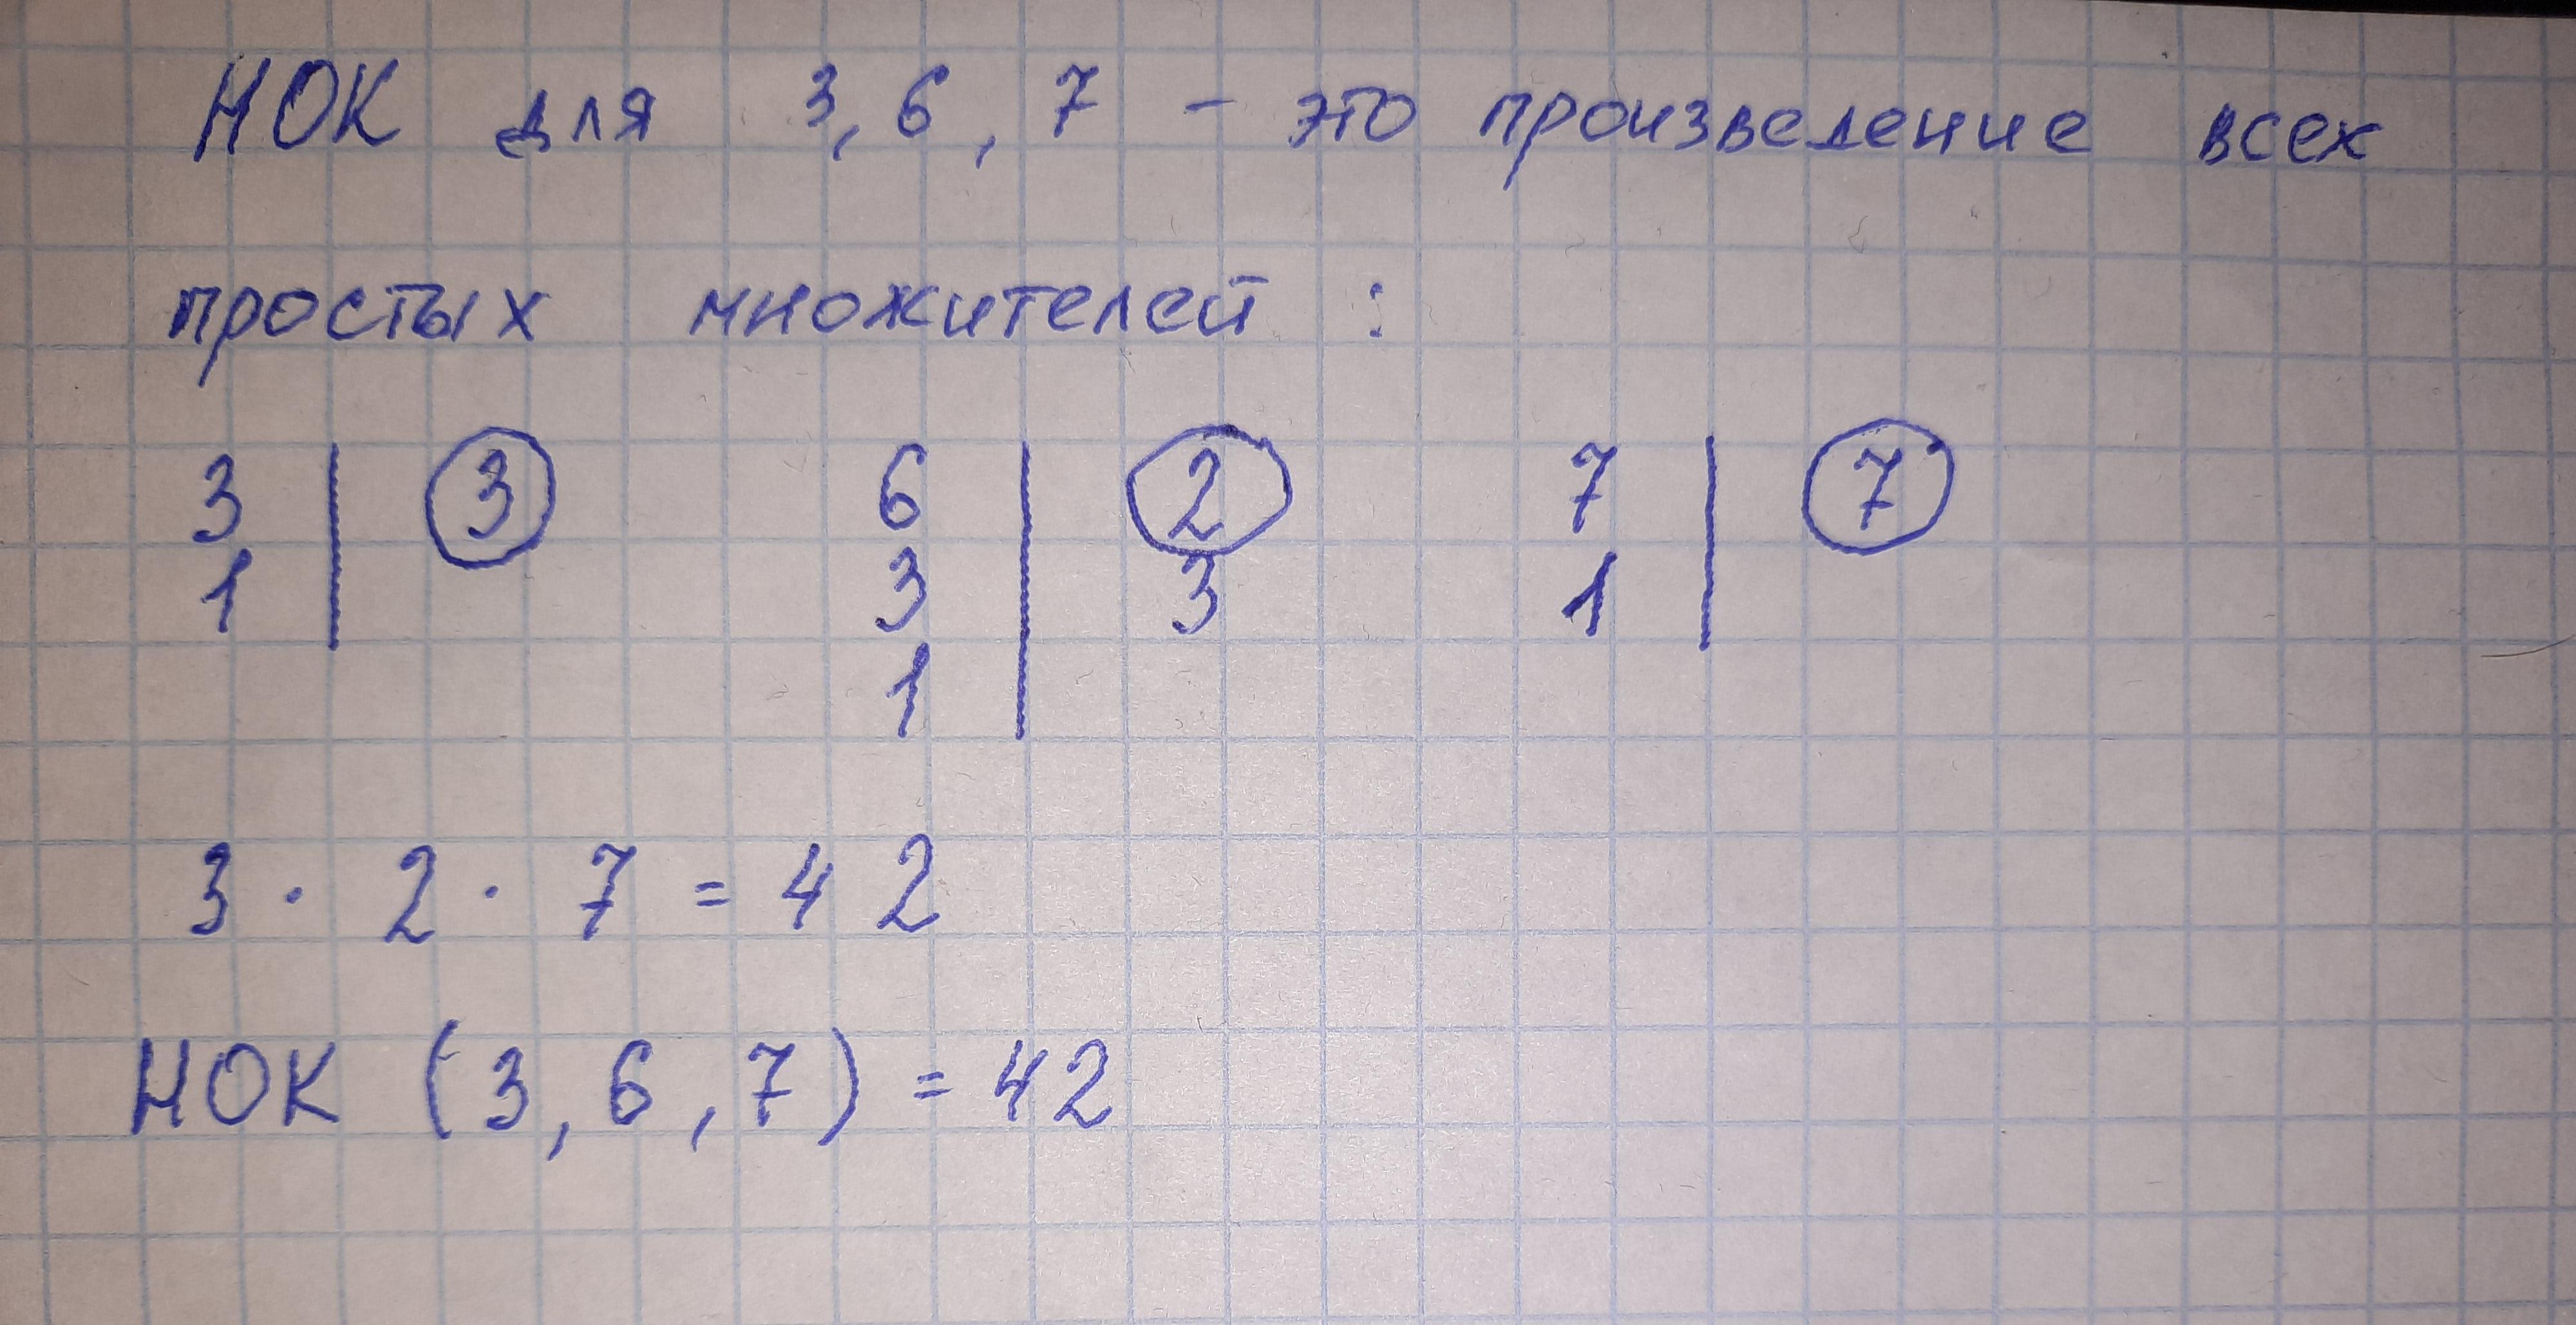 НОК для 3, 6, 7 - это произведение всех
простых множителей :
3 | 3 6 | 2 7 | 7
1 | 3 | 3 1 |
1 |
3 · 2 · 7 = 42
НОК (3, 6, 7) = 42